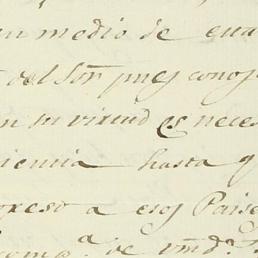 un medio de
del Sor. pues conos
su virtud es neces
iencia hasta q
greso a esos Paise
comp.a de vmd.s